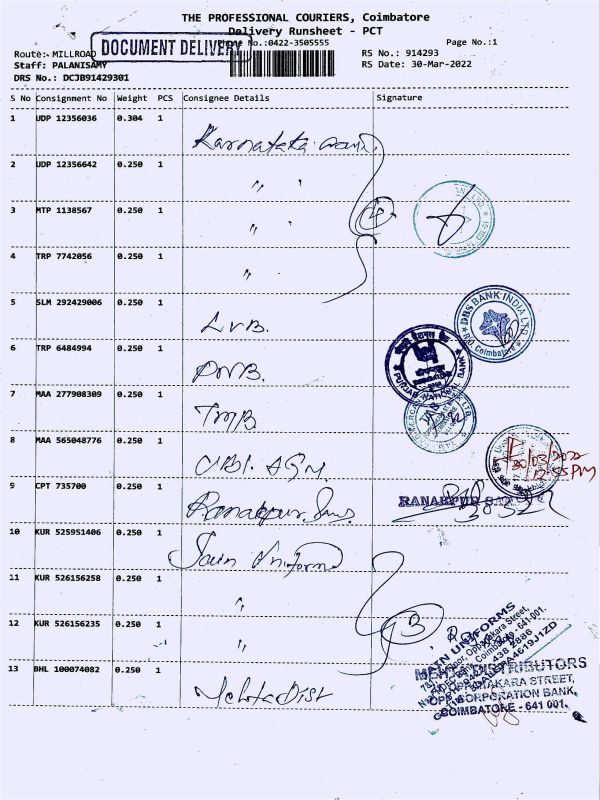 THE PROFESSIONAL COURIERS, Coimbatore
Delivery Runsheet - PCT
No.:0422-3505555
Page No.:1
DOCUMENT DELIVERY
Route:- MILLROAD
RS No.: 914293
Staff: PALANISAMY
RS Date: 30-Mar-2022
DRS No.: DCJB91429301
S No Consignment No Weight PCS Consignee Details Signature
1 UDP 12356036 0.304 1 Karnataka
2 UDP 12356642 0.250 1 " "
3 MTP 1138567 0.250 1 " "
4 TRP 7742056 0.250 1 " "
4
5 SLM 292429006 0.250 1 LVB.
DBS BANK INDIA LTD.
Coimbatore
6 TRP 6484994 0.250 1 PNB.
PUNJAB NATIONAL BANK
7 MAA 277908309 0.250 1 TMB
8 MAA 565048776 0.250 1 UBI. AGM.
30/03/2022
12:55 PM
9 CPT 735700 0.250 1 Ranakpur
RANAKPUR
10 KUR 525951406 0.250 1 Jain Uniform
11 KUR 526156258 0.250 1 "
12 KUR 526156235 0.250 1 "
3
UNIFORMS
13 BHL 100074082 0.250 1 Mehta Dist
DISTRIBUTORS
STREET,
OPP. CORPORATION BANK,
COIMBATORE - 641 001.